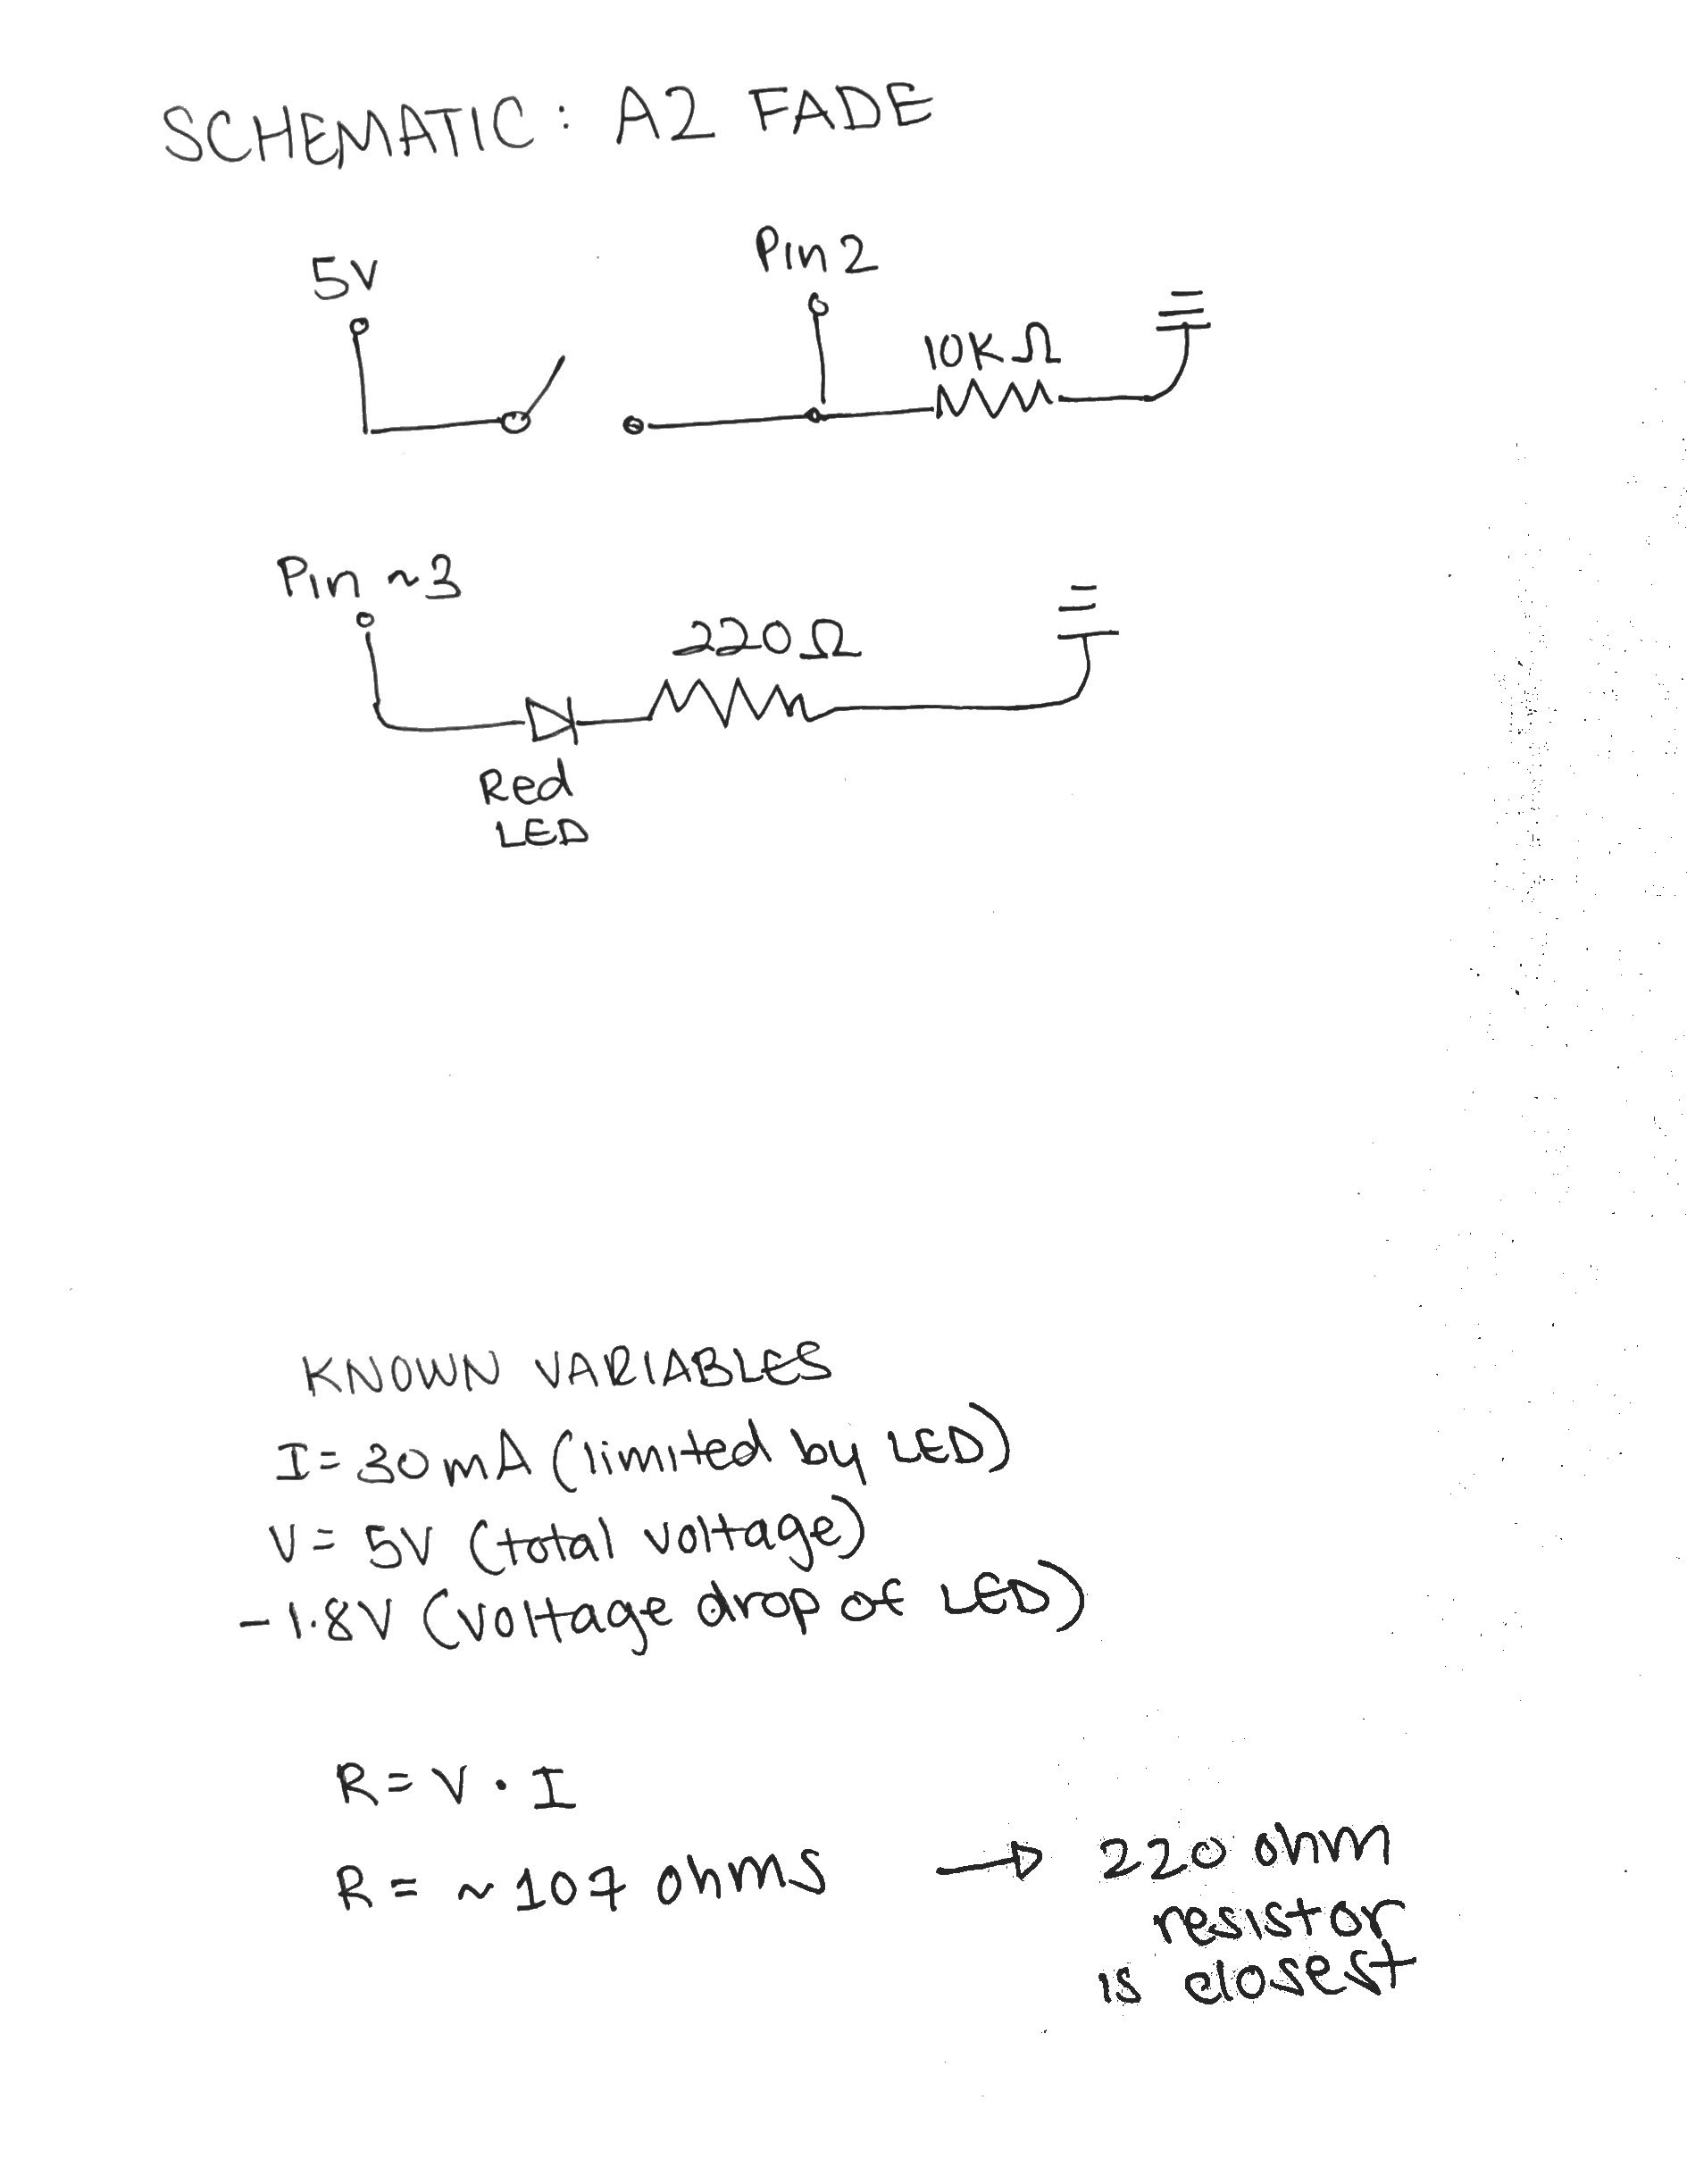 SCHEMATIC: A2 FADE
5V
Pin 2
10KΩ
Pin ~3
220Ω
Red
LED
KNOWN VARIABLES
I = 30mA (limited by LED)
V = 5V (total voltage)
-1.8V (voltage drop of LED)
R = V · I
R = ~107 ohms → 220 ohm
resistor
is closest